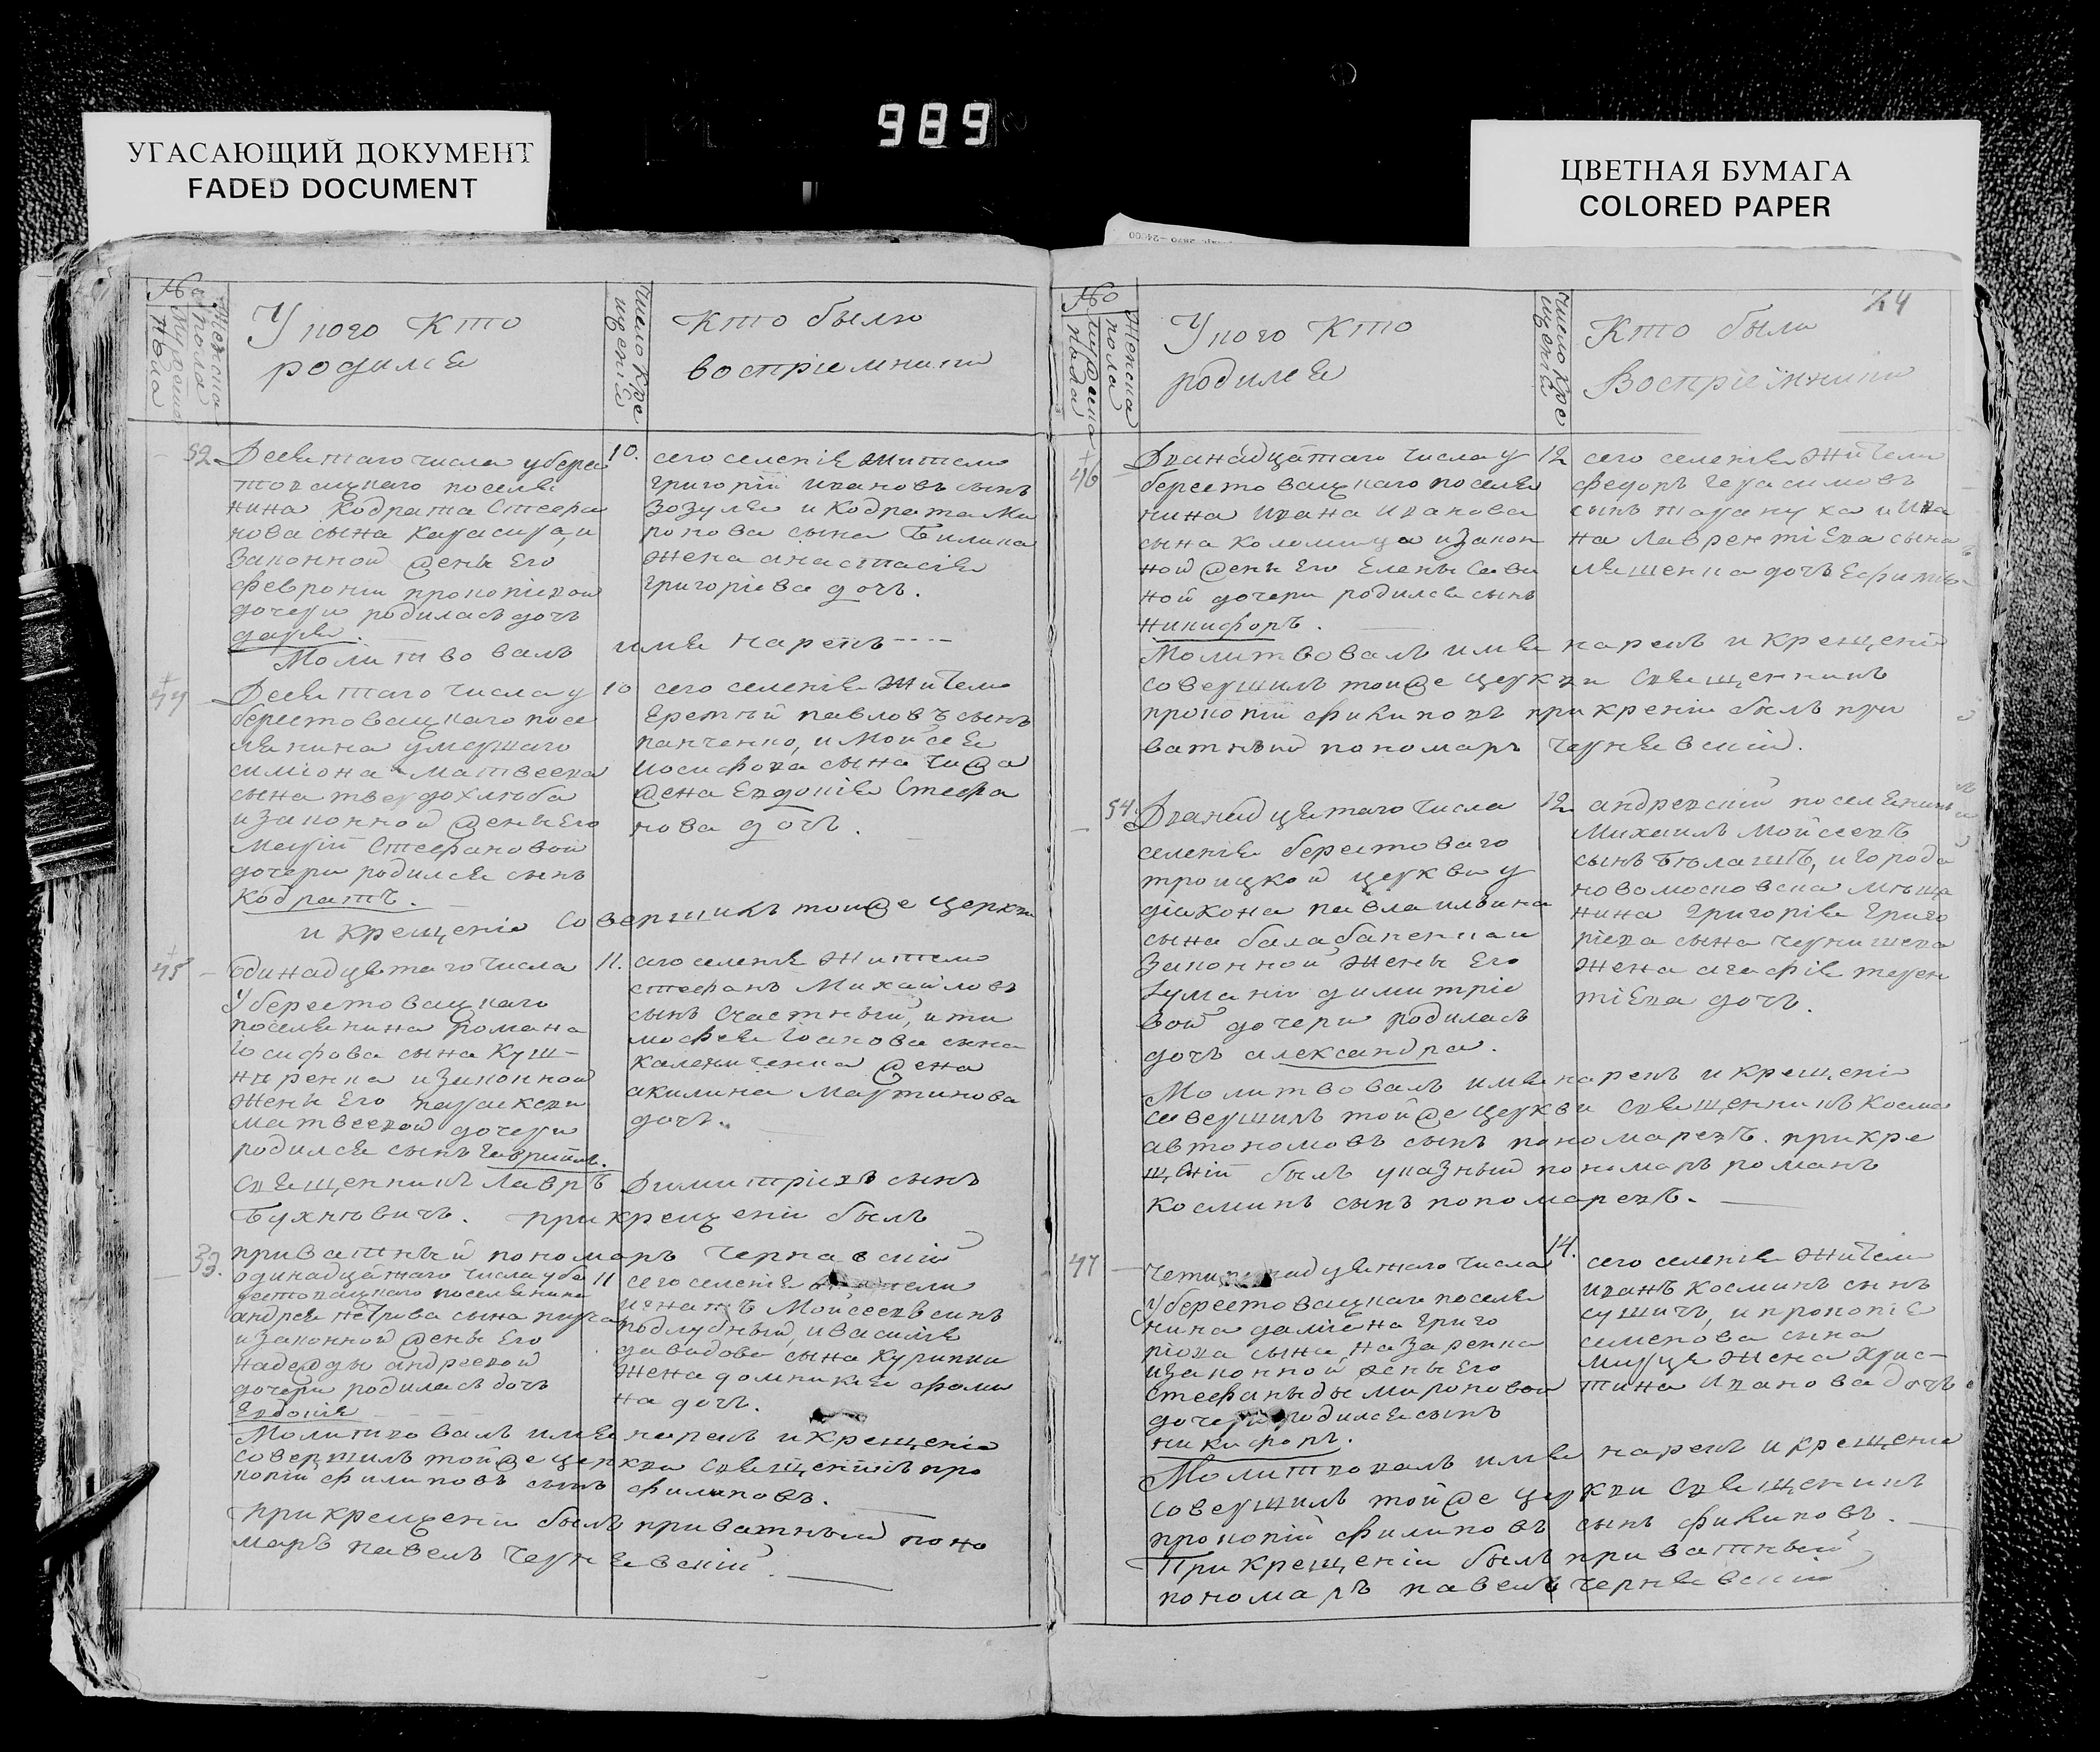 989
УГАСАЮЩИЙ ДОКУМЕНТ
FADED DOCUMENT
ЦВЕТНАЯ БУМАГА
COLORED PAPER
№
Мужеска пола
Женска пола
У кого Кто
родился
Число Кре
щенія
Кто были
восприемники
52
Девятаго числа у бере
стовацкаго поселя
нина Кодрата Стефа
нова сына Карасира, и
Законной жены Его
февроніи прокопіевой
дочери родилась дочь
дарія.
10.
сего селенія жители
григорій ивановъ сынъ
Зозуля и Кодрата Ми
ронова сына Билика
жена анастасія
григоріева дочь.
Молитвовалъ имя нарекъ
44
Девятаго числа у
берестовацкаго посе
лянина умершаго
симіона матвеева
сына твердохлюба
и законной жены Его
Маріи Стефановой
дочери родился сынъ
Кодратъ.
10
сего селенія жители
Еремій павловъ сынъ
панченко, и Мойсея
иосифова сына чижа
жена Евдокія Стефа
нова дочь.
и крещеніе совершилъ тойже церкви
45
Одинадцятаго числа
У берестовацкаго
поселянина романа
Іосифова сына Куш-
ниренка и законной
жены Его параскеви
матвеевой дочери
родился сынъ Гавриилъ.
11.
сего селенія жители
стефанъ Михайловъ
сынъ Счастный, и ти
мофея Іоанова сына
каленитенка жена
акилина Мартинова
дочь.
священникъ Лавръ Димитріевъ сынъ
Бухновичъ. при крещеніи былъ
приватный пономаръ Чернявскій
53.
одинадцатаго числа у бе
рестовацкаго поселянина
андрея петрова сына
и законной жены Его
надежды андреевой
дочери родилась дочь
Евдокія
11
сего селенія жители
игнатъ Мойсеевъ синъ
подлубный, и василія
давидова сына Курипки
жена домникія фоми
на дочь.
Молитвовалъ имя нарекъ и крещеніе
совершилъ тойже церкви священникъ про
копій филиповъ сынъ филиповъ.
при крещеніи былъ приватный поно
маръ павелъ Чернявскій.
24
№
Мужеска пола
Женска пола
У кого Кто
родился
Число Кре
щенія
Кто были
Восприемники
46
Дванадцатаго числа у
берестовацкаго поселя
нина ивана иванова
сына коломийца и закон
ной жены Его Елены Сави
ной дочери родился сынъ
Никифоръ.
12
сего селенія жители
федоръ герасимовъ
сынъ тарануха и ива
на Лаврентіева сына
ляшенка дочь Ефимія
Молитвовалъ имя нарекъ и крещеніе
совершилъ тойже церкви священникъ
прокопій филиповъ при креніи былъ при
ватный пономаръ чернявскій.
54
Дванадцятаго числа
селенія берестоваго
троицкой церкви у
діакона павла ильина
сына балабаненка и
законной жены Его
Іуманіи димитріе
вой дочери родилась
дочь александра.
12
андреевскій поселянинъ
Михаилъ Мойсеевъ
сынъ Бълашъ, и города
новомосковска мъща
нина григорія григо
ріева сына чернишева
жена агафія терен
тіева дочь.
Молитвовалъ имя нарекъ и крещеніе
совершилъ тойже церкви священникъ Косма
автономовъ сынъ пономаревъ. при кре
щеніи былъ указный пономаръ романъ
косминъ сынъ пономаревъ.
47
Четирнадцятаго числа
У берестовацкаго поселя
нина даміяна григо
ріева сына назаренка
и законной жены Его
Стефаниды мироновой
дочери родился сынъ
никифоръ.
14.
сего селенія жители
иванъ косминъ сынъ
сушичъ, и прокопія
семенова сына
жена Хрис-
тина иванова дочь
Молитвовалъ имя нарекъ и крещеніе
совершилъ тойже церкви священикъ
прокопій филиповъ сынъ филиповъ.
При крещеніи былъ приватный
пономаръ павелъ чернявскій